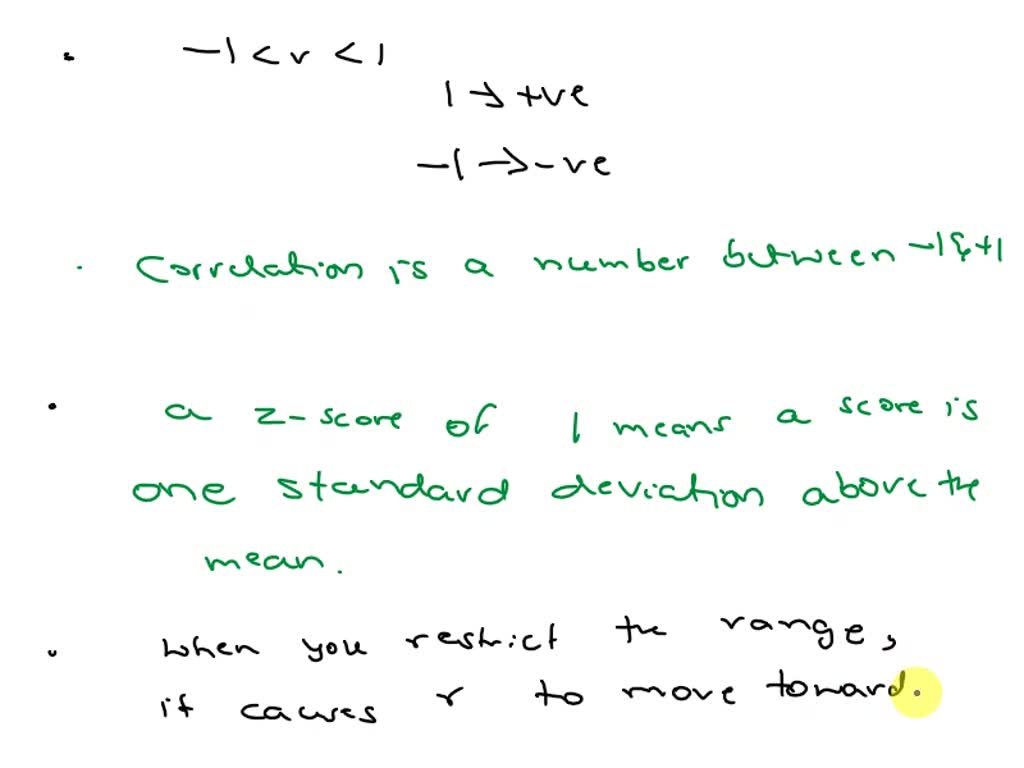 • -1 < r < 1
1 → +ve
-1 → -ve
• Correlation is a number between -1 & +1
• a z-score of 1 means a score is
one standard deviation above the
mean.
• when you restrict the range,
it causes r to move toward.